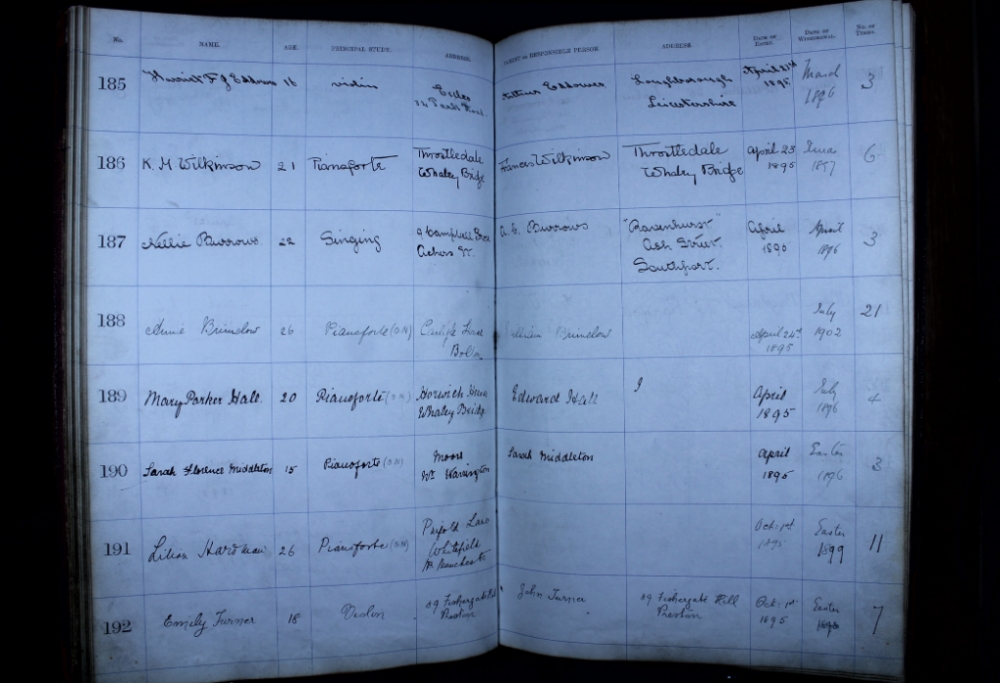 No. NAME. AGE. PRINCIPAL STUDY. ADDRESS. PARENT or RESPONSIBLE PERSON. ADDRESS. DATE OF ENTRY. DATE OF WITHDRAWAL. NO. OF TERMS.
185 Harriet F J Eddowes 16 violin Eccles Arthur Eddowes Loughborough April 23rd March 3
Leicestershire 1895 1896
186 K. M Wilkinson 21 Pianoforte Throstledale Frances Wilkinson Throstledale April 23 6
Whaley Bridge Whaley Bridge 1895 1897
187 Nellie Burrows. 22 Singing 9 Campbell A. E. Burrows "Ravenhurst" April April 3
Ackers St. Ash Street 1895 1896
Southport.
188 Annie Brimelow 26 Pianoforte (O.N) William Brimelow April 24th July 21
Bolton 1895 1902
189 Mary Parker Hall. 20 Pianoforte (O.N) Horwich House Edward Hall April July 4
Whaley Bridge 1895 1896
190 Sarah Florence Middleton 15 Pianoforte (O.N) Moore Sarah Middleton April Easter 3
Nr Warrington 1895 1896
191 Lilian Hardman 26 Pianoforte (O.N) Lane Oct. 1st Easter 11
Whitefield 1895 1899
Nr Manchester
192 Emily Turner 18 Violin 89 Fishergate Hill John Turner 89 Fishergate Hill Oct. 1st Easter 7
Preston Preston 1895